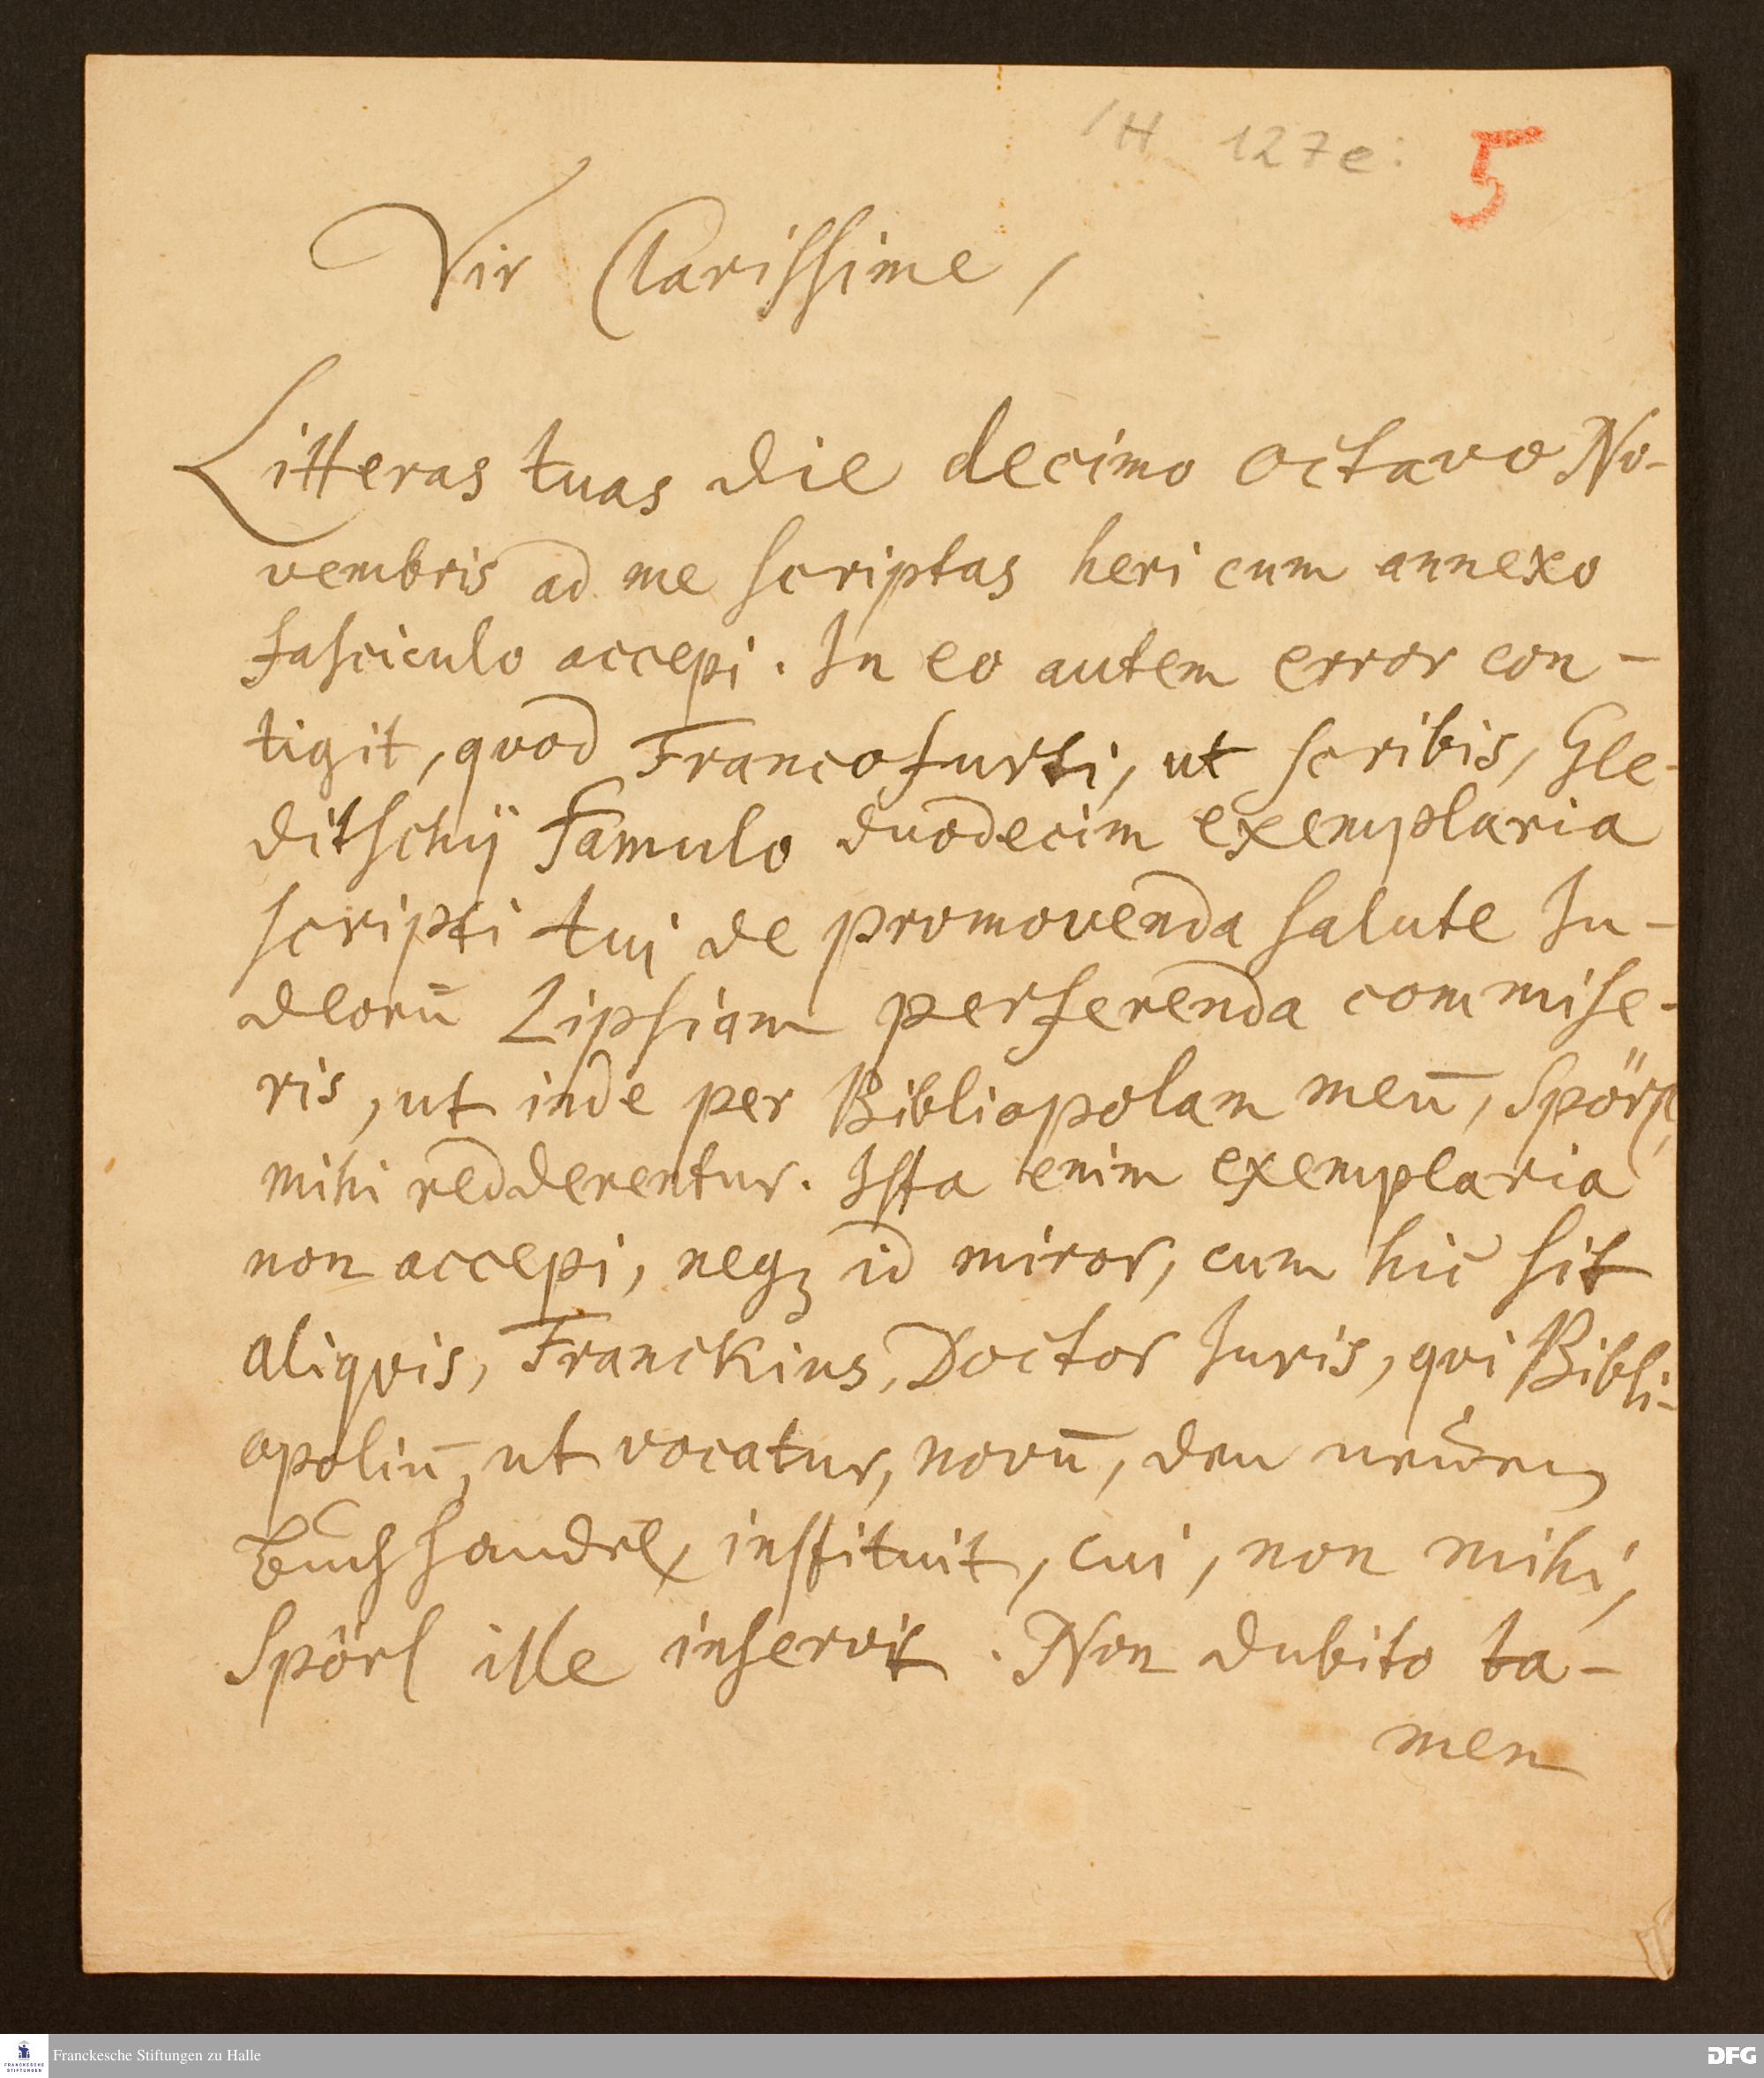 /H 127e: 5
Vir Clarissime,
Litteras tuas die decimo octavo No-
vembris ad me scriptas heri cum annexo
fasciculo accepi. In eo autem error con-
tigit, quod Francofurti, ut scribis, Gle-
ditschij famulo duodecim exemplaria
scripti tui de promovenda salute Iu-
deorū Lipsiam perferenda commise-
ris, ut inde per Bibliopolam meū, Spörl,
mihi redderentur. Ista enim exemplaria
non accepi, neqꝫ id miror, cum hic sit
aliqvis, Franckius, Doctor Iuris, qvi Bibli-
opoliū, ut vocatur, novū, den neŭen
Buchhandel, instituit, cui, non mihi,
Spörl ille inservit. Non dubito ta-
men
Franckesche Stiftungen zu Halle
FRANCKESCHE
STIFTUNGEN
DFG